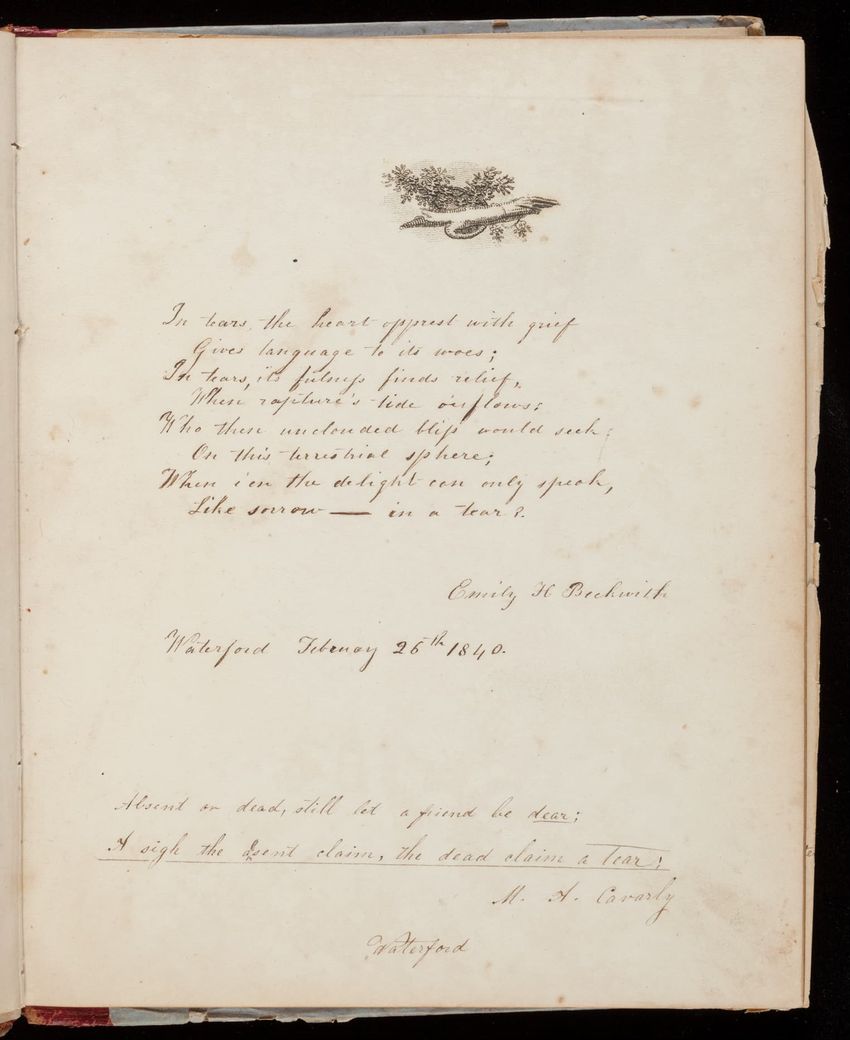 In tears, the heart opprest with grief
Gives language to its woes;
In tears, its fulness finds relief,
When rapture's tide o'erflows;
Who then unclouded bliss would seek;
On this terrestrial sphere;
When e'en the delight can only speak,
Like sorrow — in a tear?
Emily H Beckwith
Waterford February 26th 1840.
Absent or dead, still let a friend be dear;
A sigh the absent claim, the dead claim a tear;
M. A. Cavarly
Waterford